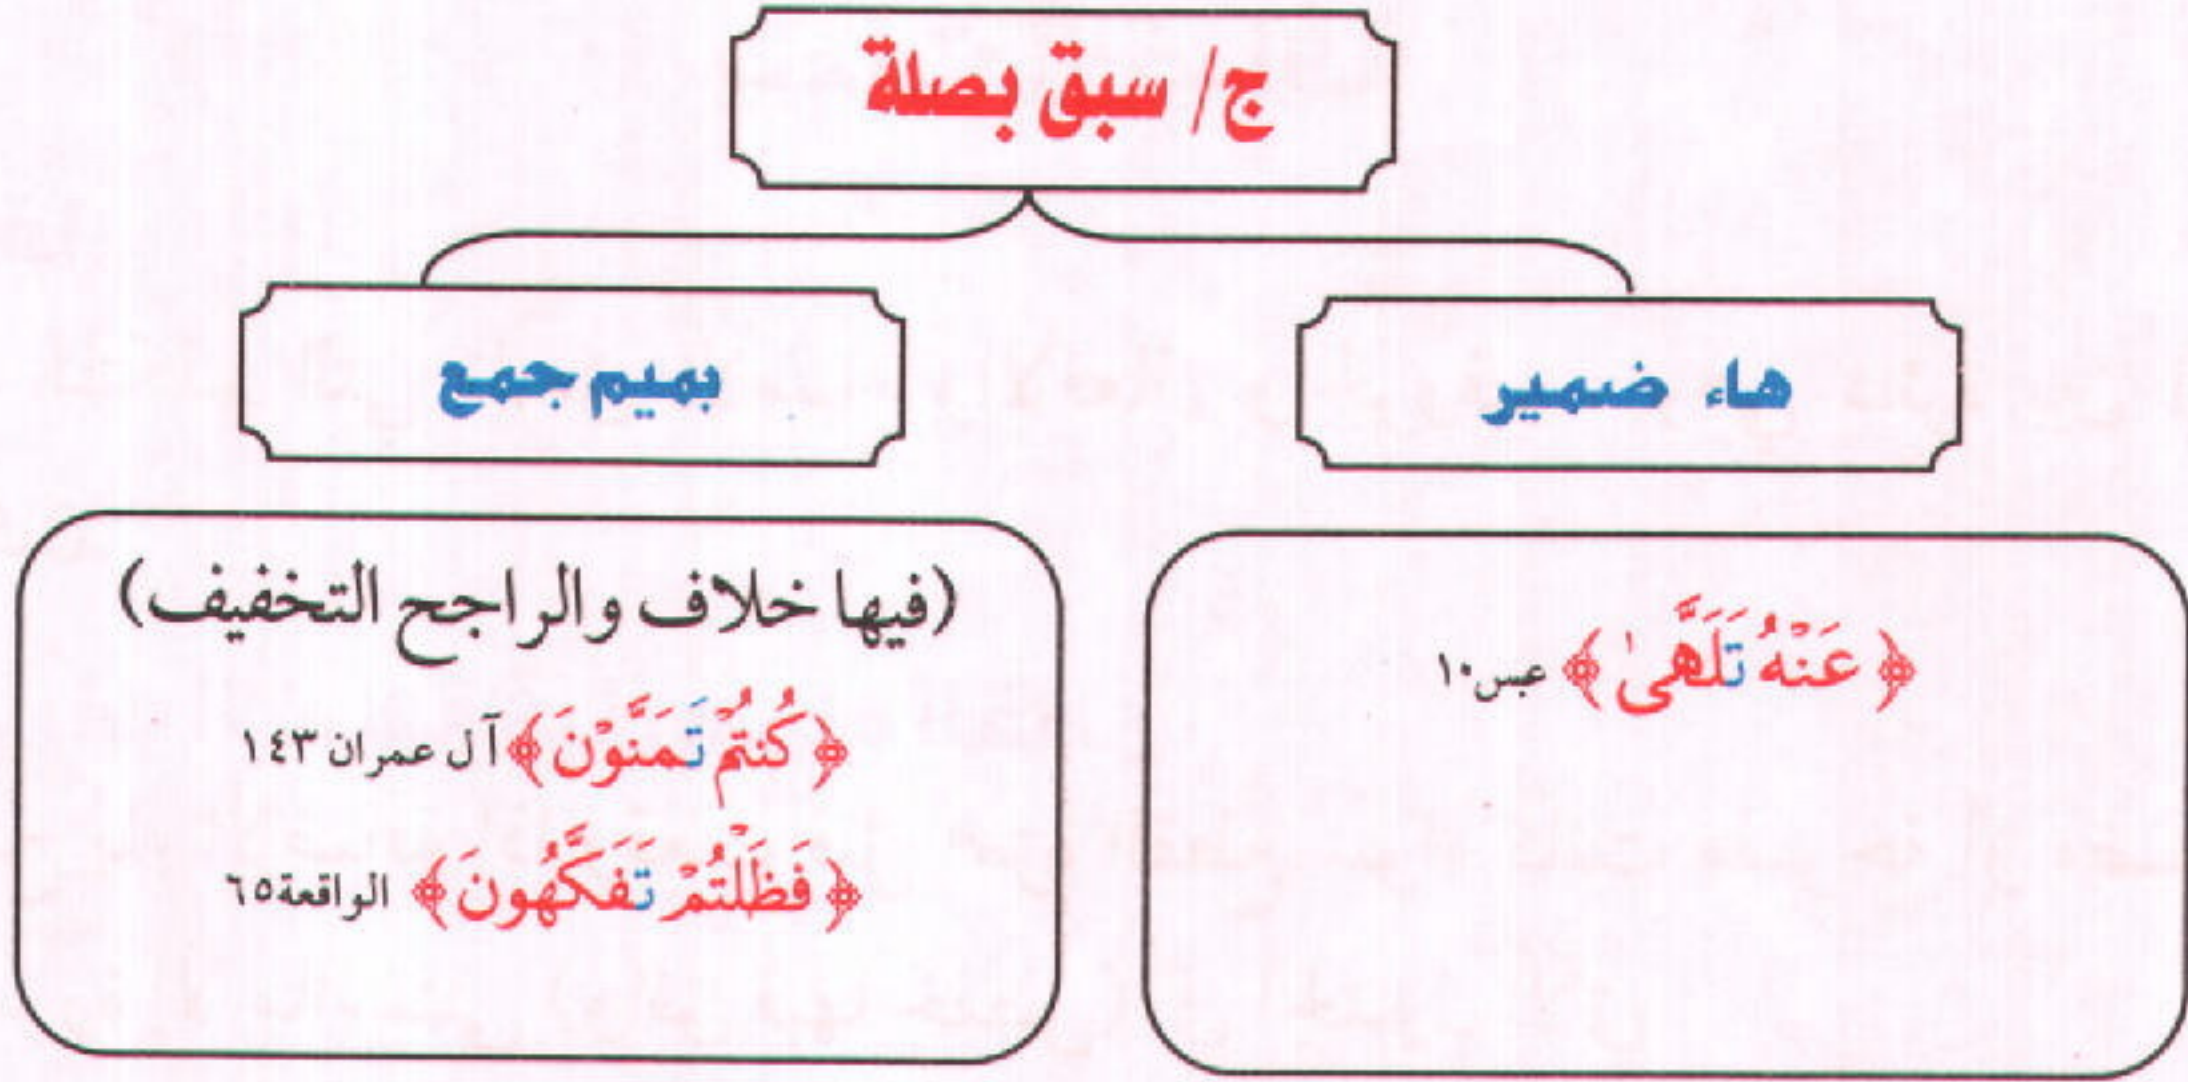 ج/ سبق بصلة
هاء ضمير
بميم جمع
﴿ عَنْهُ تَلَهَّىٰ ﴾ عبس١٠
(فيها خلاف والراجح التخفيف)
﴿ كُنتُمْ تَمَنَّوْنَ ﴾ آل عمران ١٤٣
﴿ فَظَلْتُمْ تَفَكَّهُونَ ﴾ الواقعة٦٥